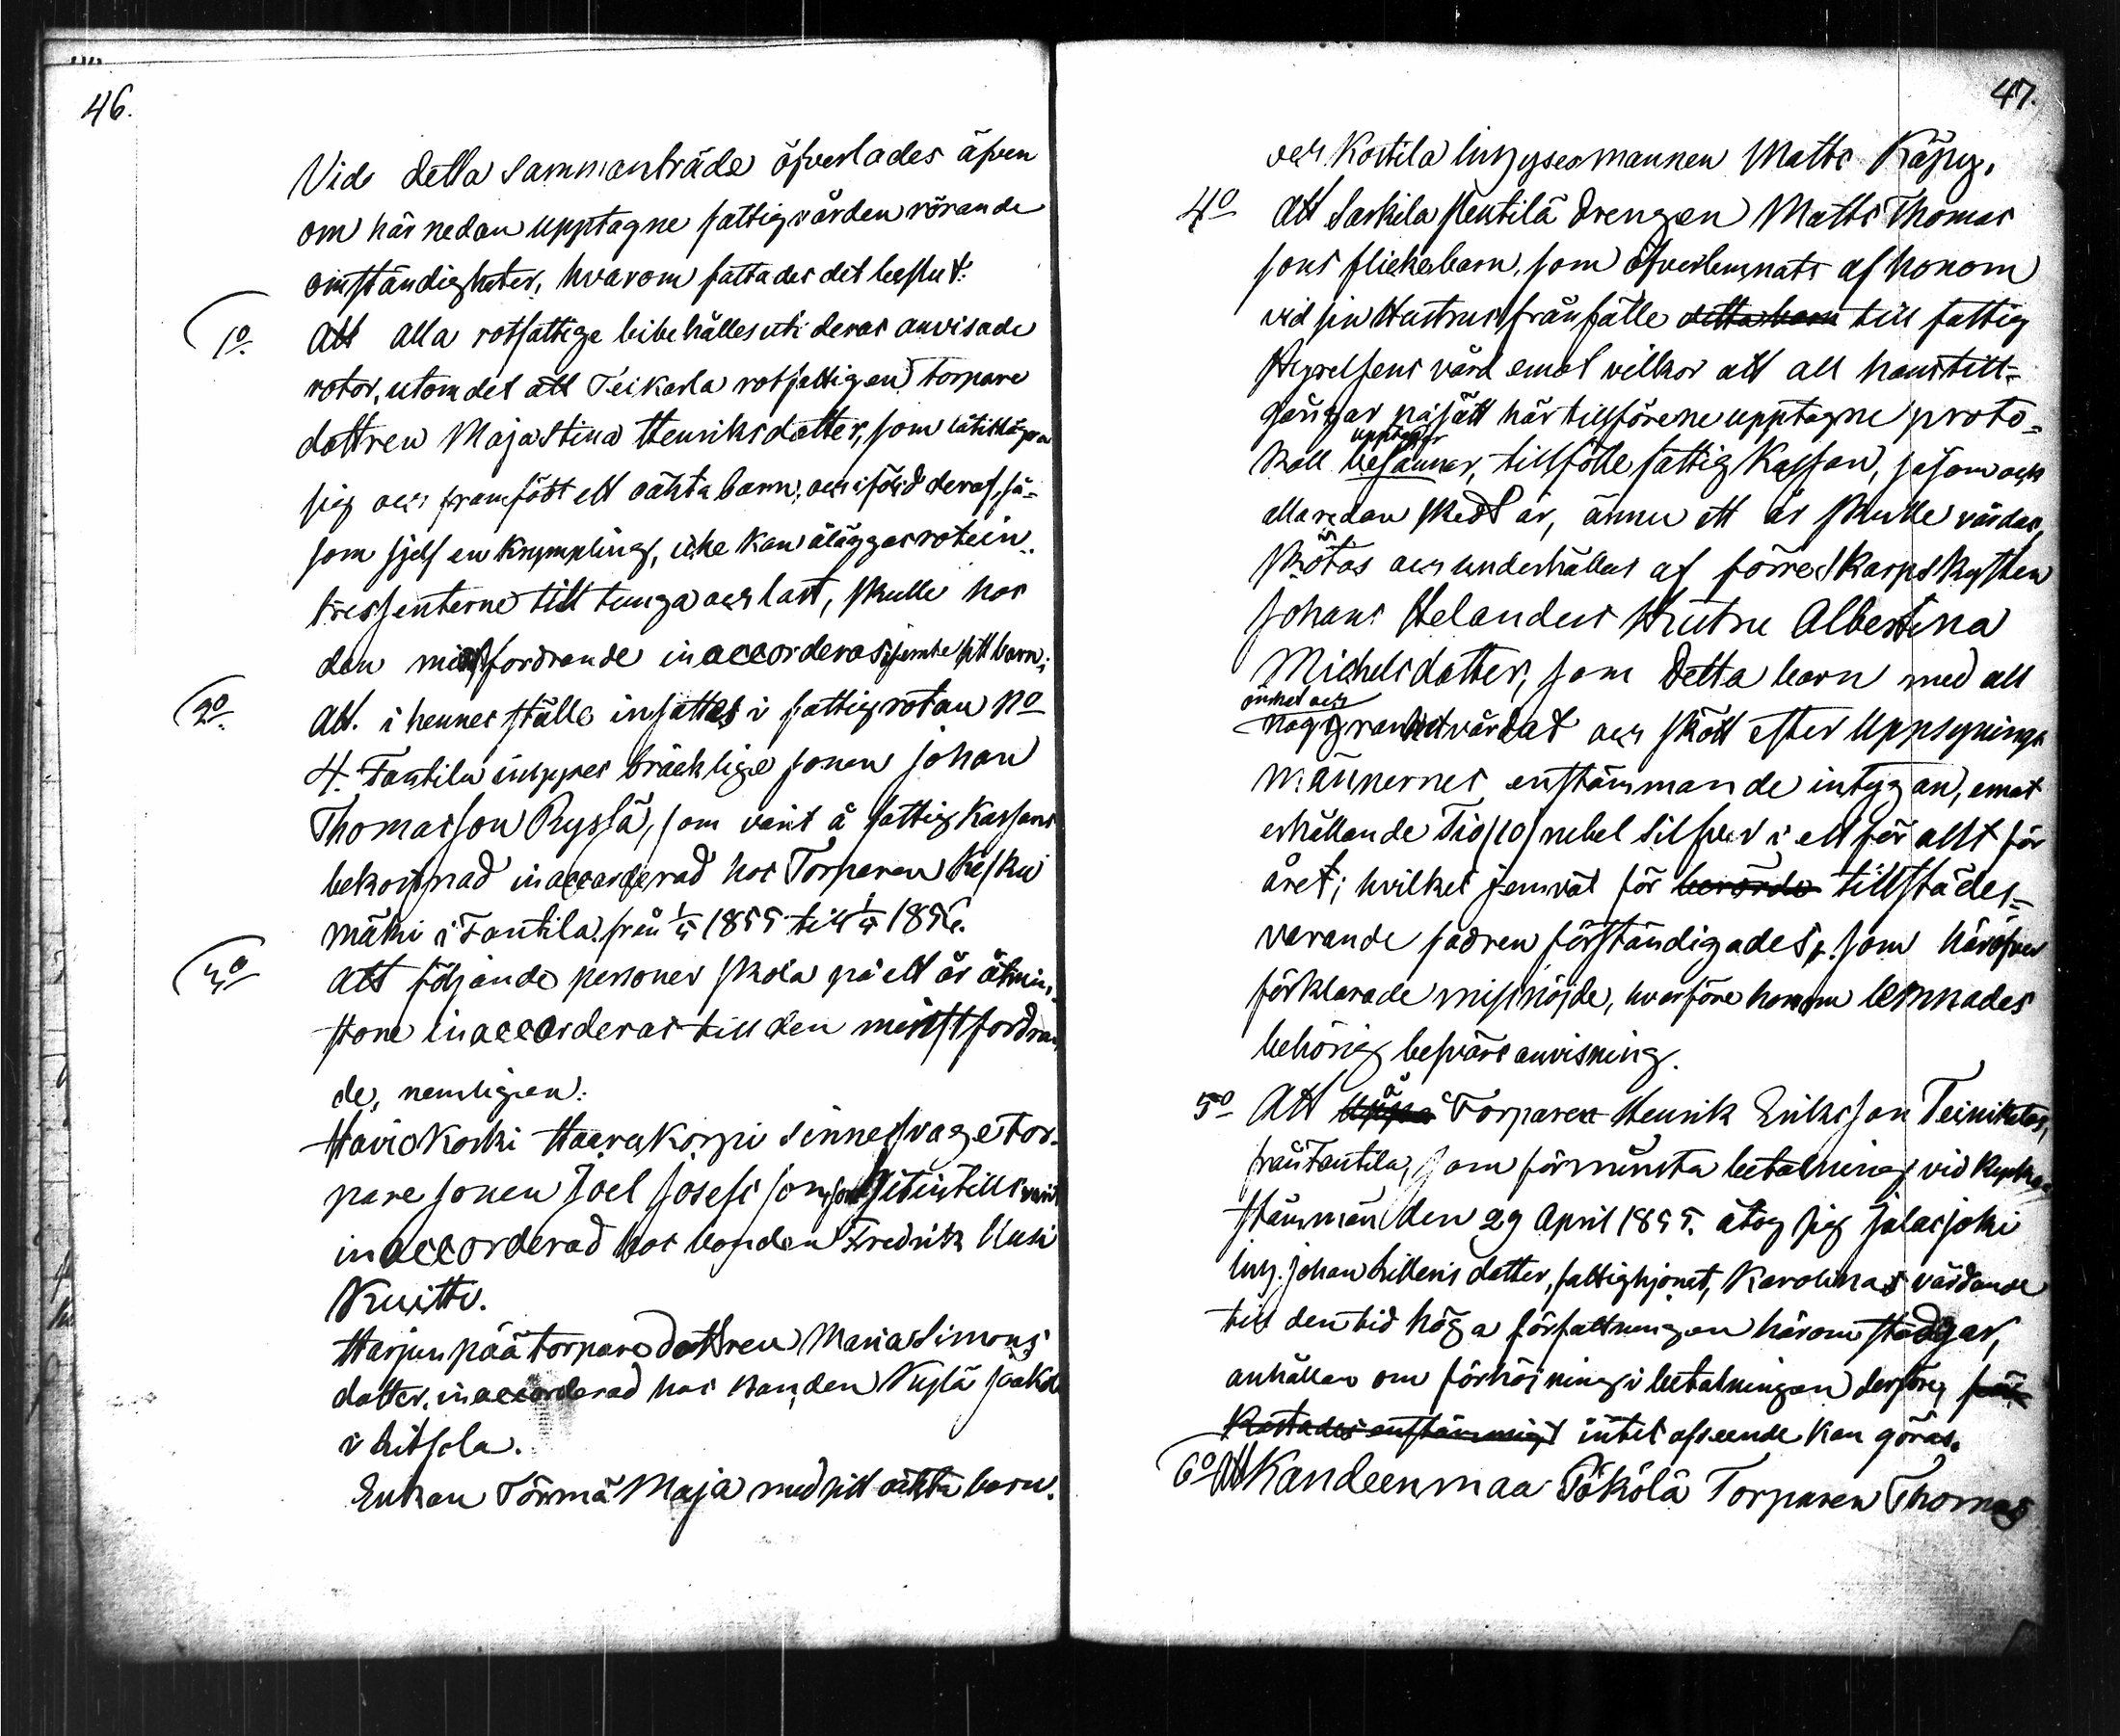 46.
Vid detta sammanträde öfverlades äfven
om här nedan upptagne fattigvården rörande
omständigheter, hvarom fattades det beslut:
1o. Att alla rotfattige bibehålles uti deras anvisade
rotor, utom det att Teikarla rotfattigen torpare
dottren Maja Stina Henriksdotter, som låtit lägra
sig och framfödt ett oäkta barn, och i följd deraf, så-
som sjelf en krympling, icke kan åläggas rotein-
tressenterne till tunga och last, skulle hos
den minstfordrande inaccorderas jemte sitt barn;
2o. Att i hennes ställe insattes i fattigrotan No
4. Fantila inhyses bräcklige sonen Johan
Thomasson Ryssä, som varit å fattig Kassans
bekostnad inaccorderad hos Torparen Keski
mäki i Fantila från 1855 till 1856.
3o Att följande personer skola på ett år åtmin-
stone inaccorderas till den minstfordran
de, nemligen:
Haviokoski Haarakorpi sinnesvage tor-
pare sonen Joel Josefs son, som hitintills varit
inaccorderad hos bonden Fredrik Uusi
Kuitti.
Harjunpää torparedottren Maria Simons
dotter, inaccorderad hos bonden
i Kitsola.
Enkan Törmä Maja med sitt oäkta barn.
47.
och Kottila inhysesmannen Matts
4o Att Sarkila Pentilä drengen Matts Thomas
sons flickebarn, som öfverlemnats af honom
vid sin Hustrus frånfälle detta barn till fattig
styrelsens vård emot vilkor att all hans till-
gångar på sätt här tillförene upptagne proto-
koll upptager, tillfölle fattig Kassan, såsom ock
allaredan skedt är, ännu ett år skulle vårdas,
skötas och underhållas af förre Skarpskytten
Johans Helanders Hustru Albertina
Michelsdotter, som detta barn med all
ömhet och
noggranhet vårdat och skött efter Uppsynings
männernes enstämmande intygan, emot
erhållande Tio /10/ rubel Silfver i ett för allt för
året; hvilket jemväl för berörde tillstädes-
varande fadren förständigades, som häröfver
förklarade missnöjde, hvarföre honom lemnades
behörig besvärs anvisning.
5o Att å Torparen Henrik Eriksson
från Fantila, som för minsta betalning vid
stämman den 29 April 1855. åtog sig Jalasjoki
inh. Johan dotter, fattighjonet, Karolinas vårdande
till den tid höga författningen härom stadgar,
anhållan om förhöjning i betalningen derföre,
enstämmigt intet afseende kan göras.
6o Att Kandeenmaa Pökölä Torparen Thomas